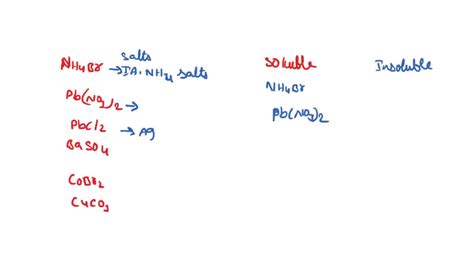 salts
NH4Br → IA, NH4 salts
Pb(NO3)2 →
PbCl2 → Ag
BaSO4
CoBr2
CuCO3
Soluble
NH4Br
Pb(NO3)2
Insoluble